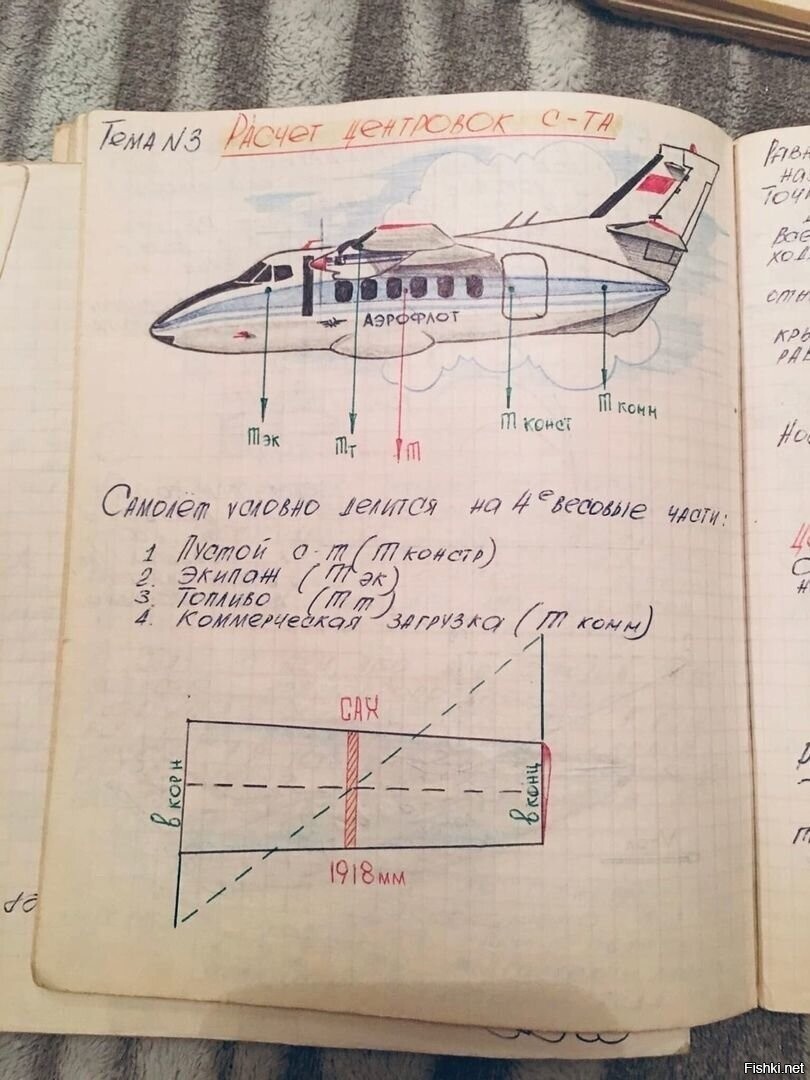 Тема N3 Расчет центровок с-та
АЭРОФЛОТ
m эк
m т
m
m конст
m комм
Самолёт условно делится на 4е весовые части:
1 Пустой с-т (m констр)
2. Экипаж (m эк)
3. Топливо (m т)
4. Коммерческая загрузка (m комм)
САХ
в корн
в конц
1918 мм
Fishki.net